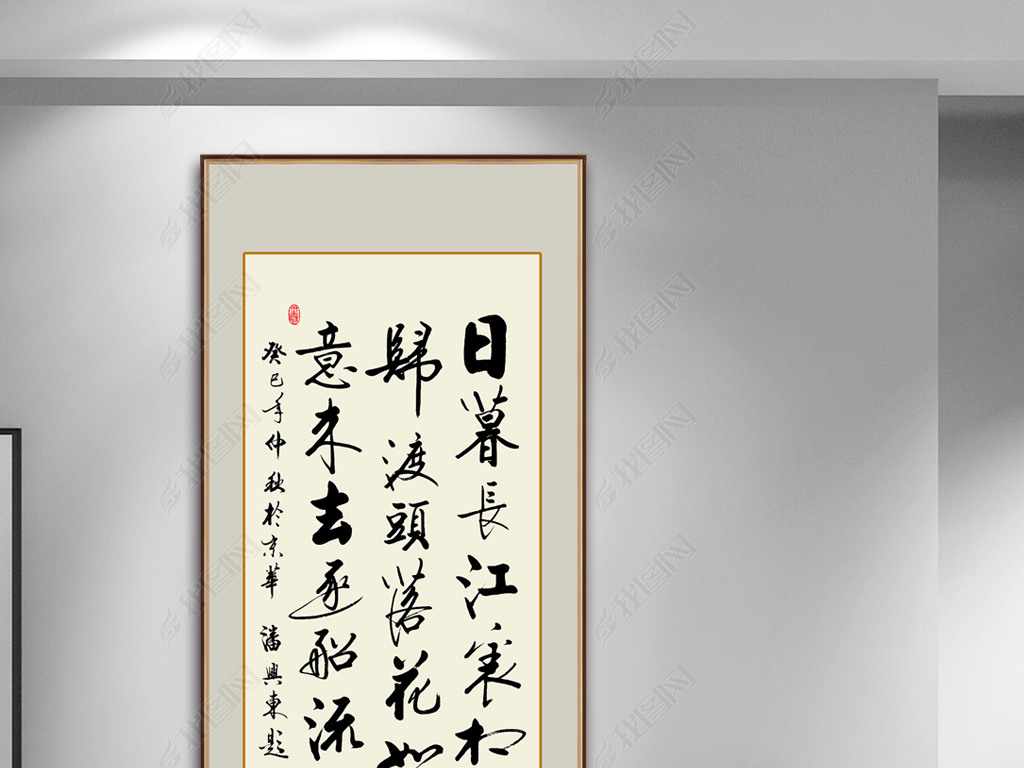 日暮長江裏相
歸渡頭落花如
意来去逐船流
癸巳年仲秋於京華 潘興東題
找图网